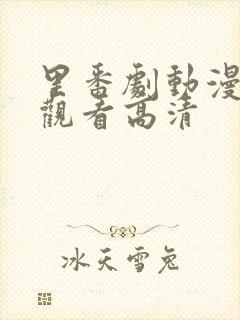 里番劇動漫
觀看高清
冰天雪兔